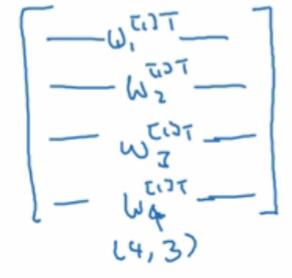 — w₁^{[1]T} —
— w₂^{[1]T} —
— w₃^{[1]T} —
— w₄^{[1]T} —
(4,3)